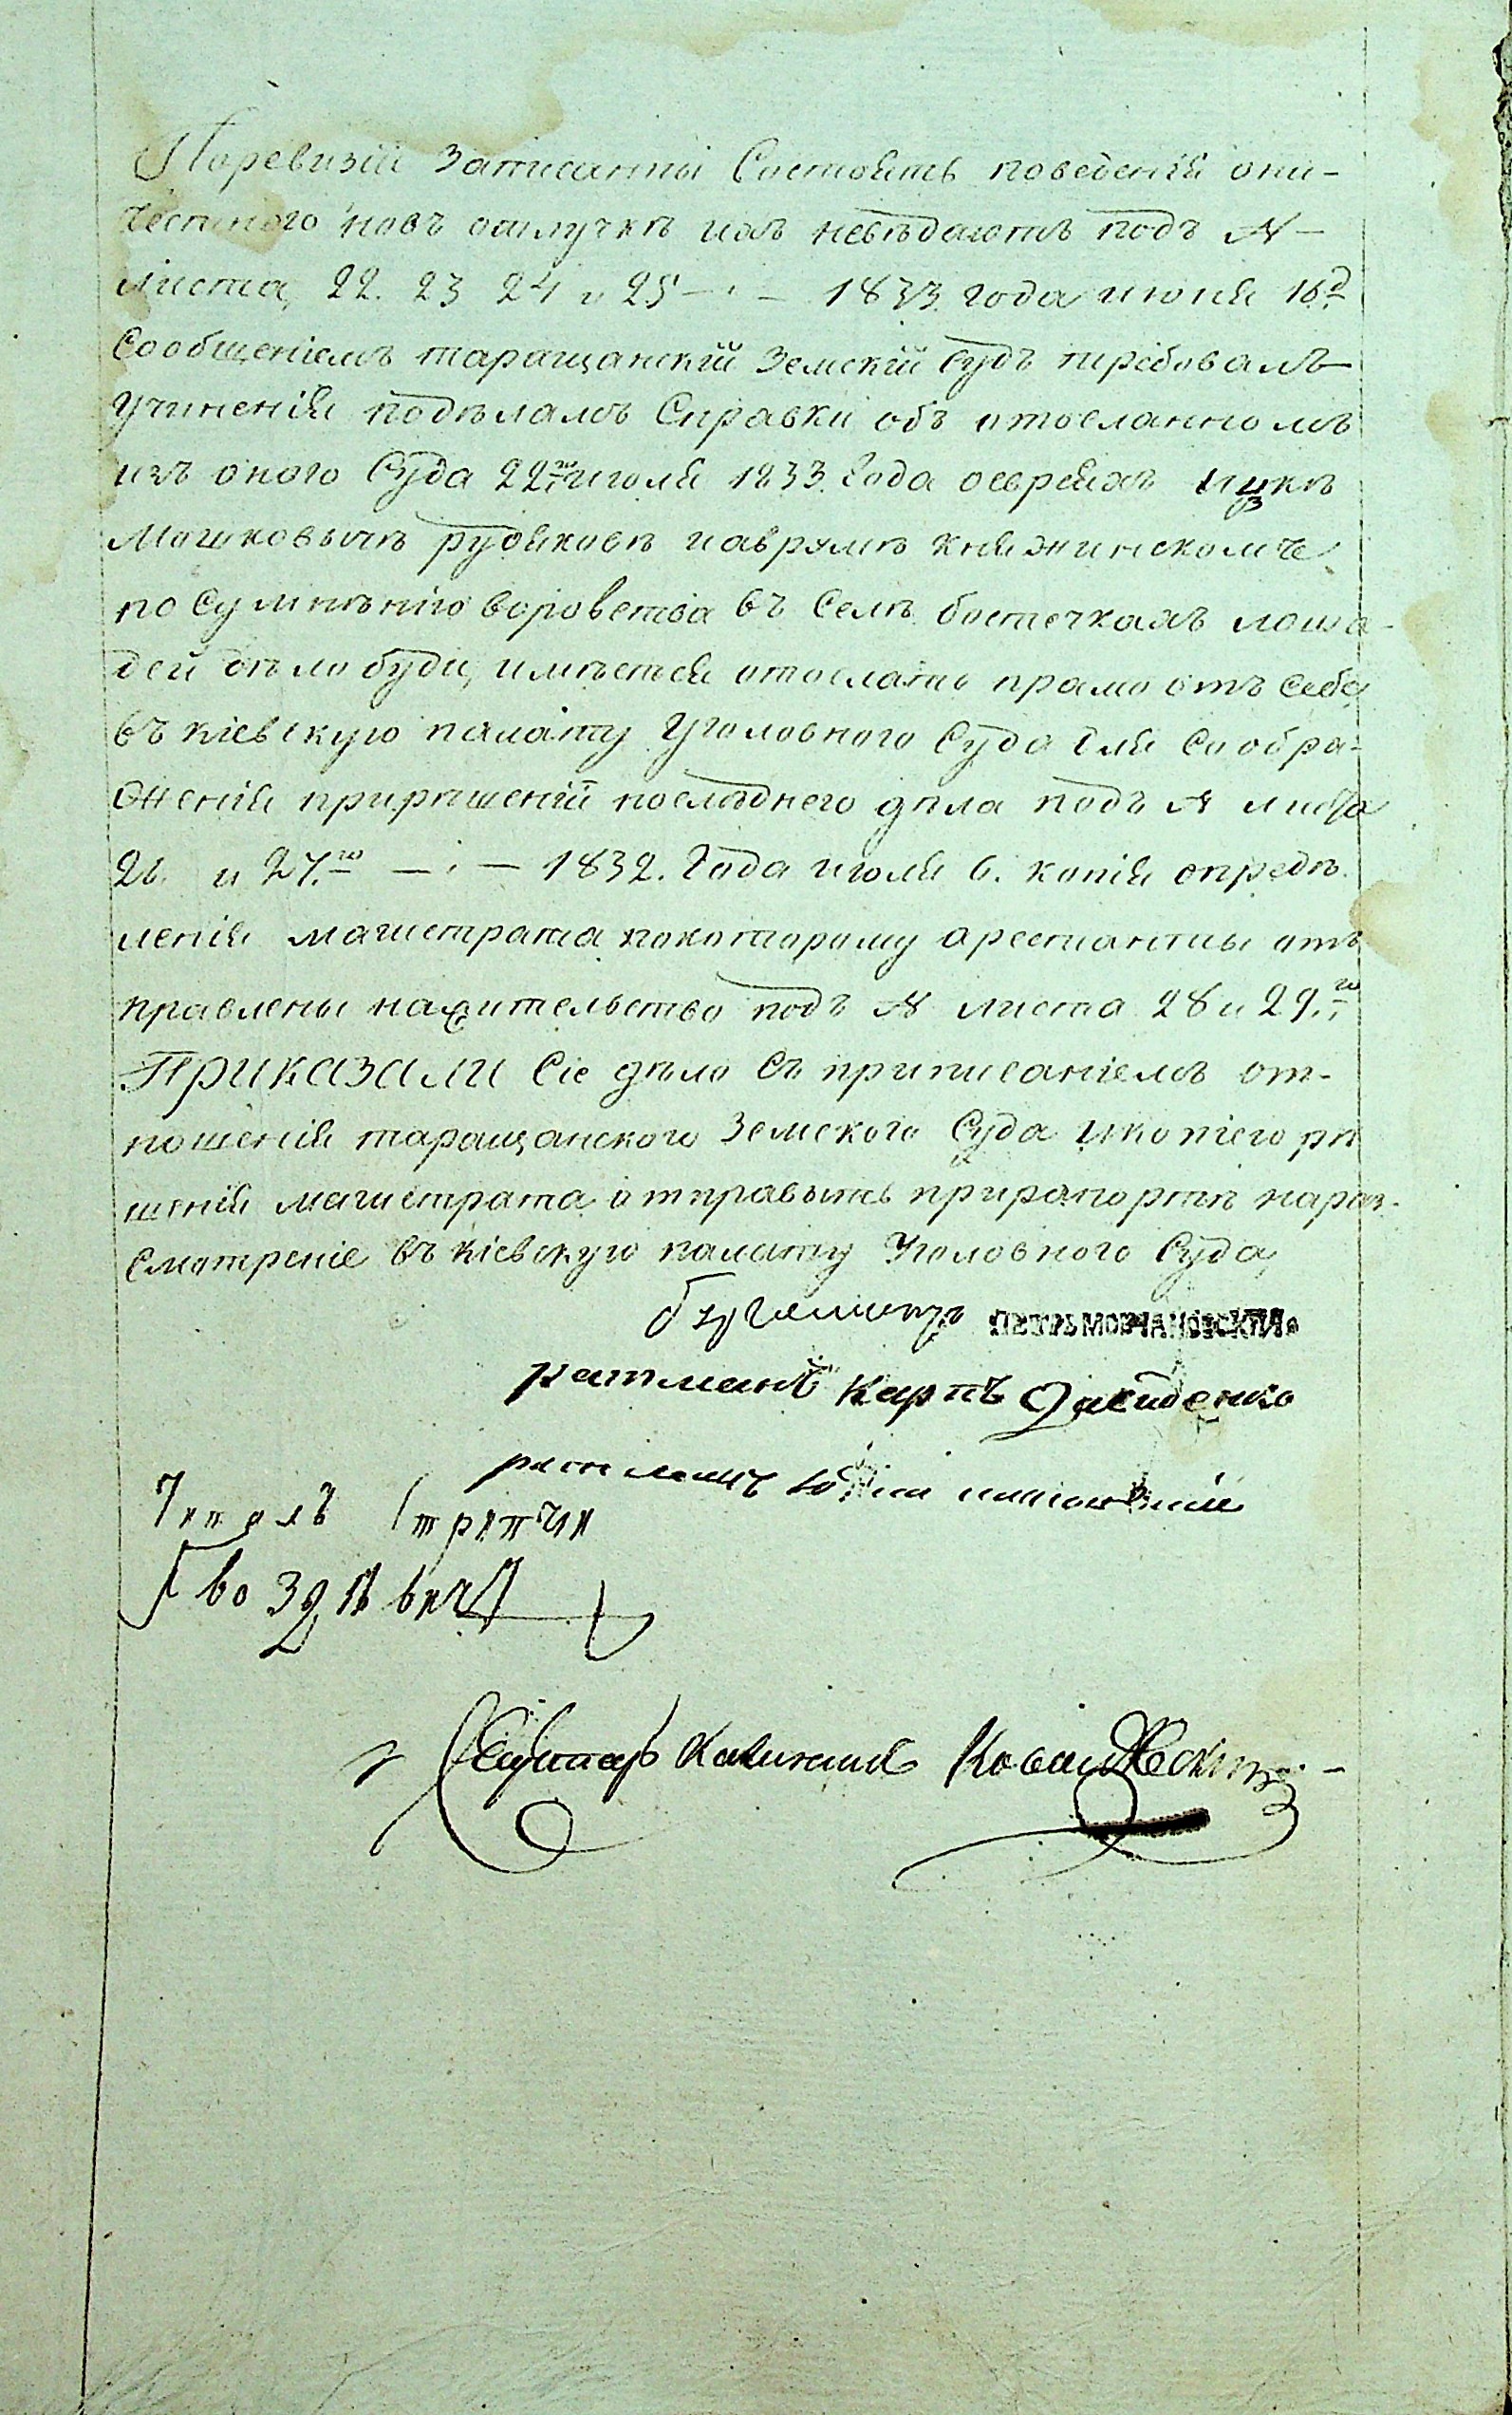 Поревизіи записанны состоятъ поведенія они-
честного новъ отлучкѣ ихъ невѣдаютъ подъ №
листа 22. 23 24 и 25 — · — 1833. года июня 16д.
Сообщеніемъ таращанскій Земскій судъ требовалъ
учиненія подѣламъ Справки объ отосланномъ
изъ оного Суда 22го июля 1833. Года оевреяхъ Ицкѣ
Мошковычѣ рудыковѣ иаврумѣ княжинскомъ
по Сумнѣнію воровства въ Селѣ бостечкахъ лоша-
дей дѣло буди имѣется отослать прамо отъ себя
въ кіевскую палату Уголовного Суда для Сообра-
женія прирѣшеніи послѣднего дѣла подъ № листа
26. и 27.го — · — 1832. Года июля 6. копія опредѣ-
ленія магистрата покоторому арестанты отъ
правлены нажительство подъ № листа 28 и 29.го
ПРИКАЗАЛИ Сіе дѣло Съ приписаніемъ от-
ношенія таращанского Земского Суда икопіею рѣ
шенія магистрата отправыть прирапортѣ нараз-
смотреніе въ кіевскую палату Уголовного Суда,
Бургомистръ ПЕТРЪ МОРЧАНОВСКІЙ
Ратманъ Карпъ Давиденко
ратманъ
Читалъ Стряпчій
Гвоздѣвичъ
Секретарь Ковалевскій